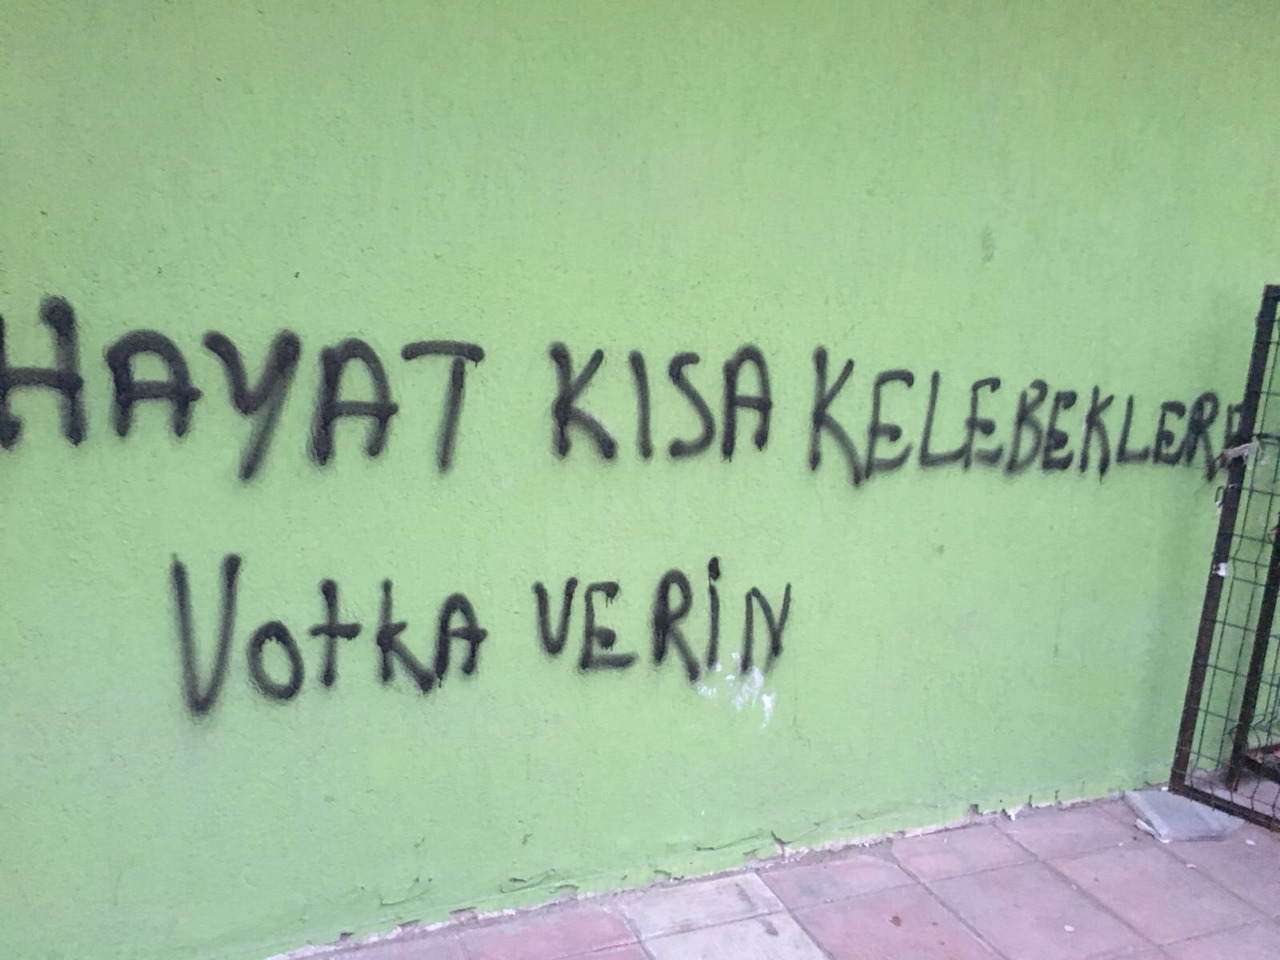 HAYAT KISA KELEBEKLERE
VotkA VERİN